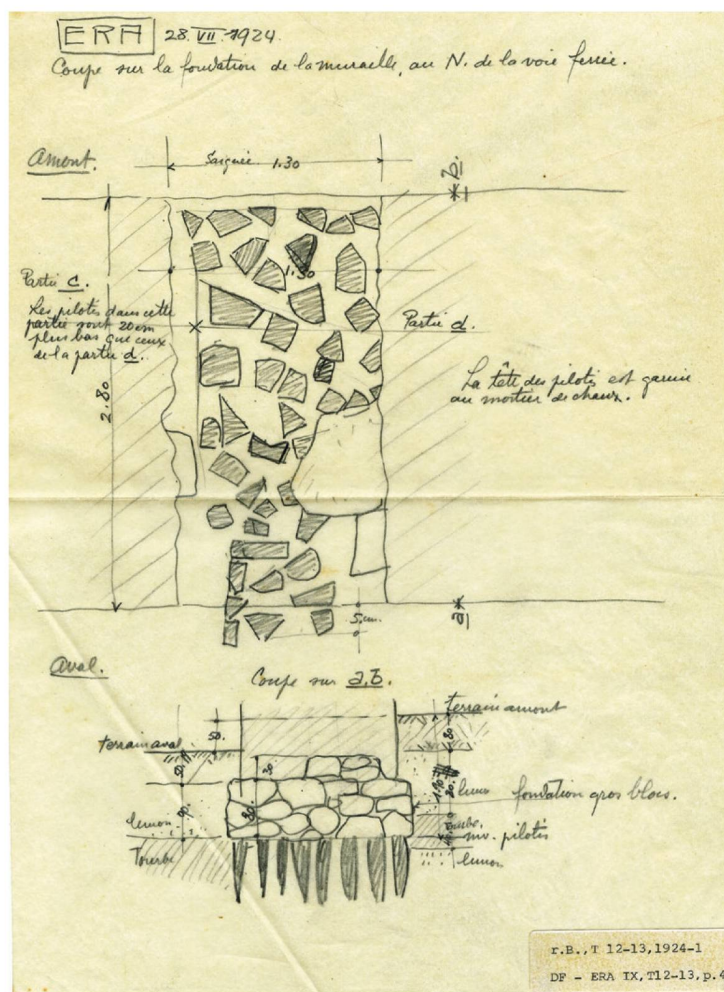 ERA 28.VII.1924.
Coupe sur la fondation de la muraille, au N. de la voie ferrée.
Amont.
Saignée 1.30
b.
1.30
Partie c.
Les pilotis dans cette
partie sont 20 cm
plus bas que ceux
de la partie d.
Partie d.
La tête des pilotis est garnie
au mortier de chaux.
2.80
5 cm.
a
Aval.
Coupe sur a.b.
terrain amont
50.
80
terrain aval
50.
30
limon
fondation gros blocs.
80.
limon
90.
Tourbe
tourbe
niv. pilotis
limon
r.B.,T 12-13,1924-1
DF - ERA IX,T12-13,p.4